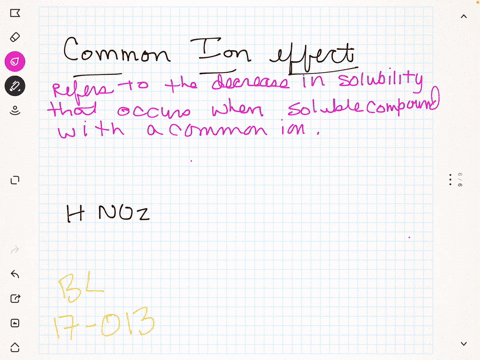 Common Ion effect
Refers to the decrease in solubility
that occurs when soluble compound
with a common ion.
H NO2
BL
17-013